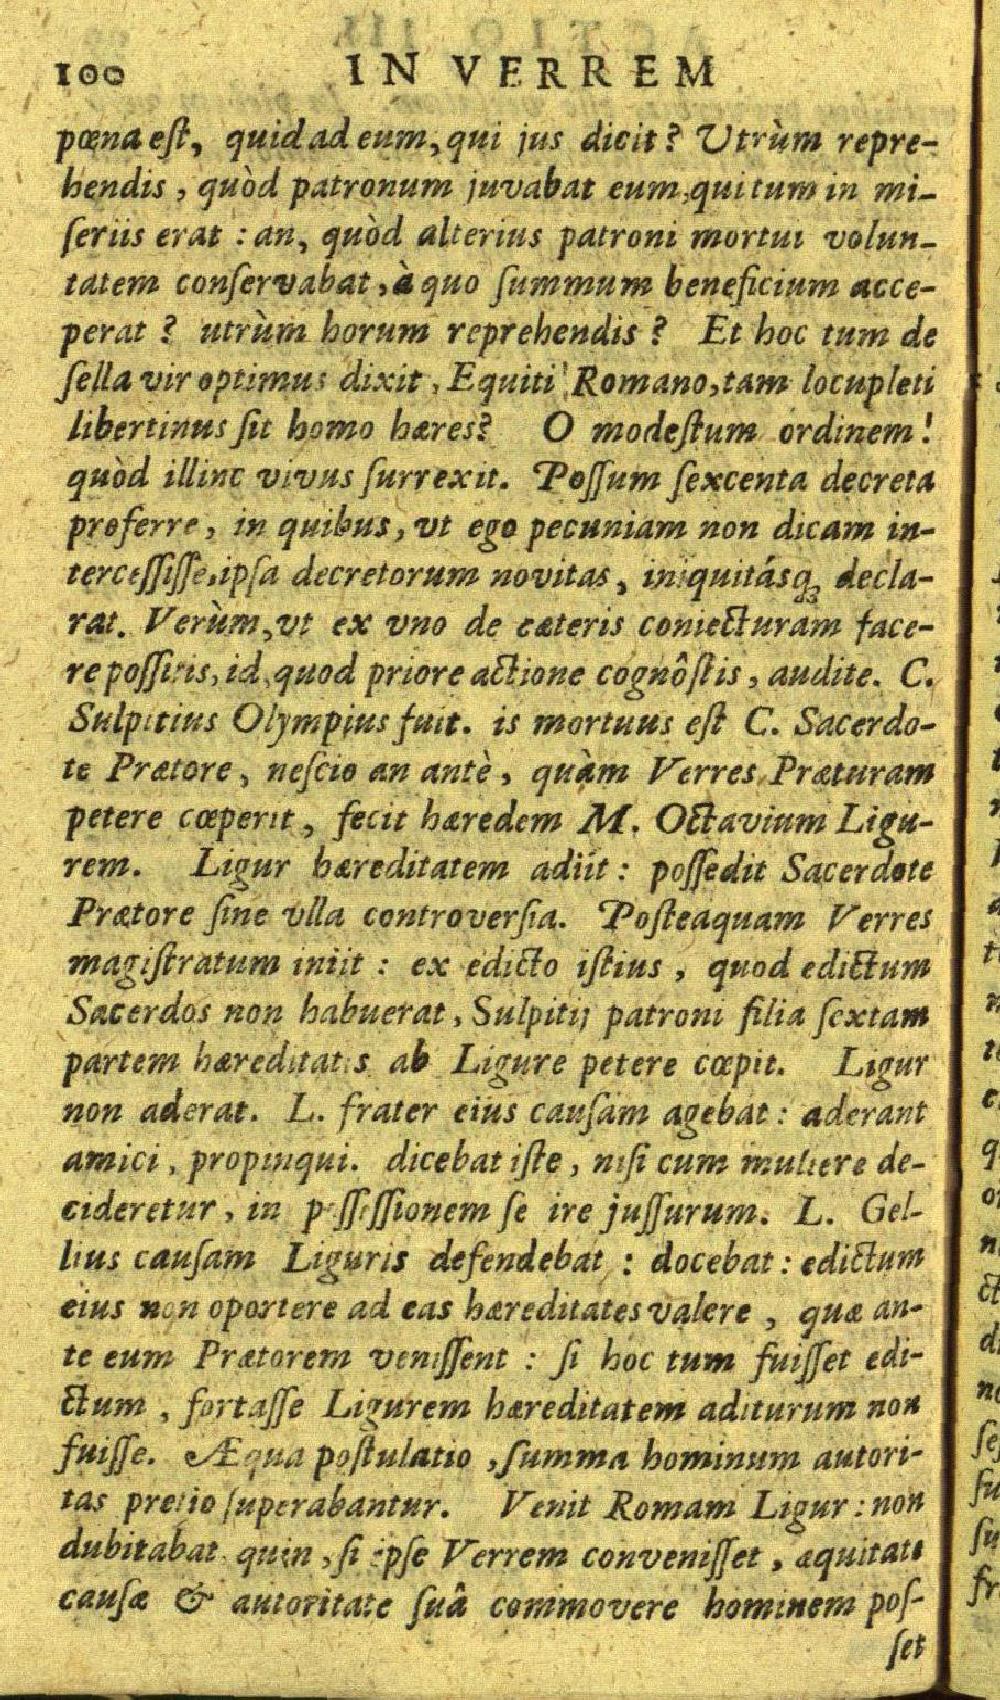 100 IN VERREM
pœna est, quid ad eum, qui jus dicit? Utrùm repre-
hendis, quòd patronum juvabat eum, qui tum in mi-
seriis erat: an, quòd alterius patroni mortui volun-
tatem conservabat, à quo summum beneficium acce-
perat? utrùm horum reprehendis? Et hoc tum de
sella vir optimus dixit, Equiti Romano, tam locupleti
libertinus sit homo hæres? O modestum ordinem!
quòd illinc vivus surrexit. Possum sexcenta decreta
proferre, in quibus, vt ego pecuniam non dicam in-
tercessisse, ipsa decretorum novitas, iniquitásq; decla-
rat. Verùm, vt ex vno de cæteris coniecturam face-
re possitis, id, quod priore actione cognôstis, audite. C.
Sulpitius Olympius fuit. is mortuus est C. Sacerdo-
te Prætore, nescio an antè, quàm Verres Præturam
petere cœperit, fecit hæredem M. Octavium Ligu-
rem. Ligur hæreditatem adiit: possedit Sacerdote
Prætore sine vlla controversia. Posteaquam Verres
magistratum iniit: ex edicto istius, quod edictum
Sacerdos non habuerat, Sulpitij patroni filia sextam
partem hæreditatis ab Ligure petere cœpit. Ligur
non aderat. L. frater eius causam agebat: aderant
amici, propinqui. dicebat iste, nisi cum muliere de-
cideretur, in possessionem se ire jussurum. L. Gel-
lius causam Liguris defendebat: docebat: edictum
eius non oportere ad eas hæreditates valere, quæ an-
te eum Prætorem venissent: si hoc tum fuisset edi-
ctum, fortasse Ligurem hæreditatem aditurum non
fuisse. Æqua postulatio, summa hominum autori-
tas pretio superabantur. Venit Romam Ligur: non
dubitabat quin, si ipse Verrem convenisset, æquitate
causæ & autoritate suâ commovere hominem pos-
set